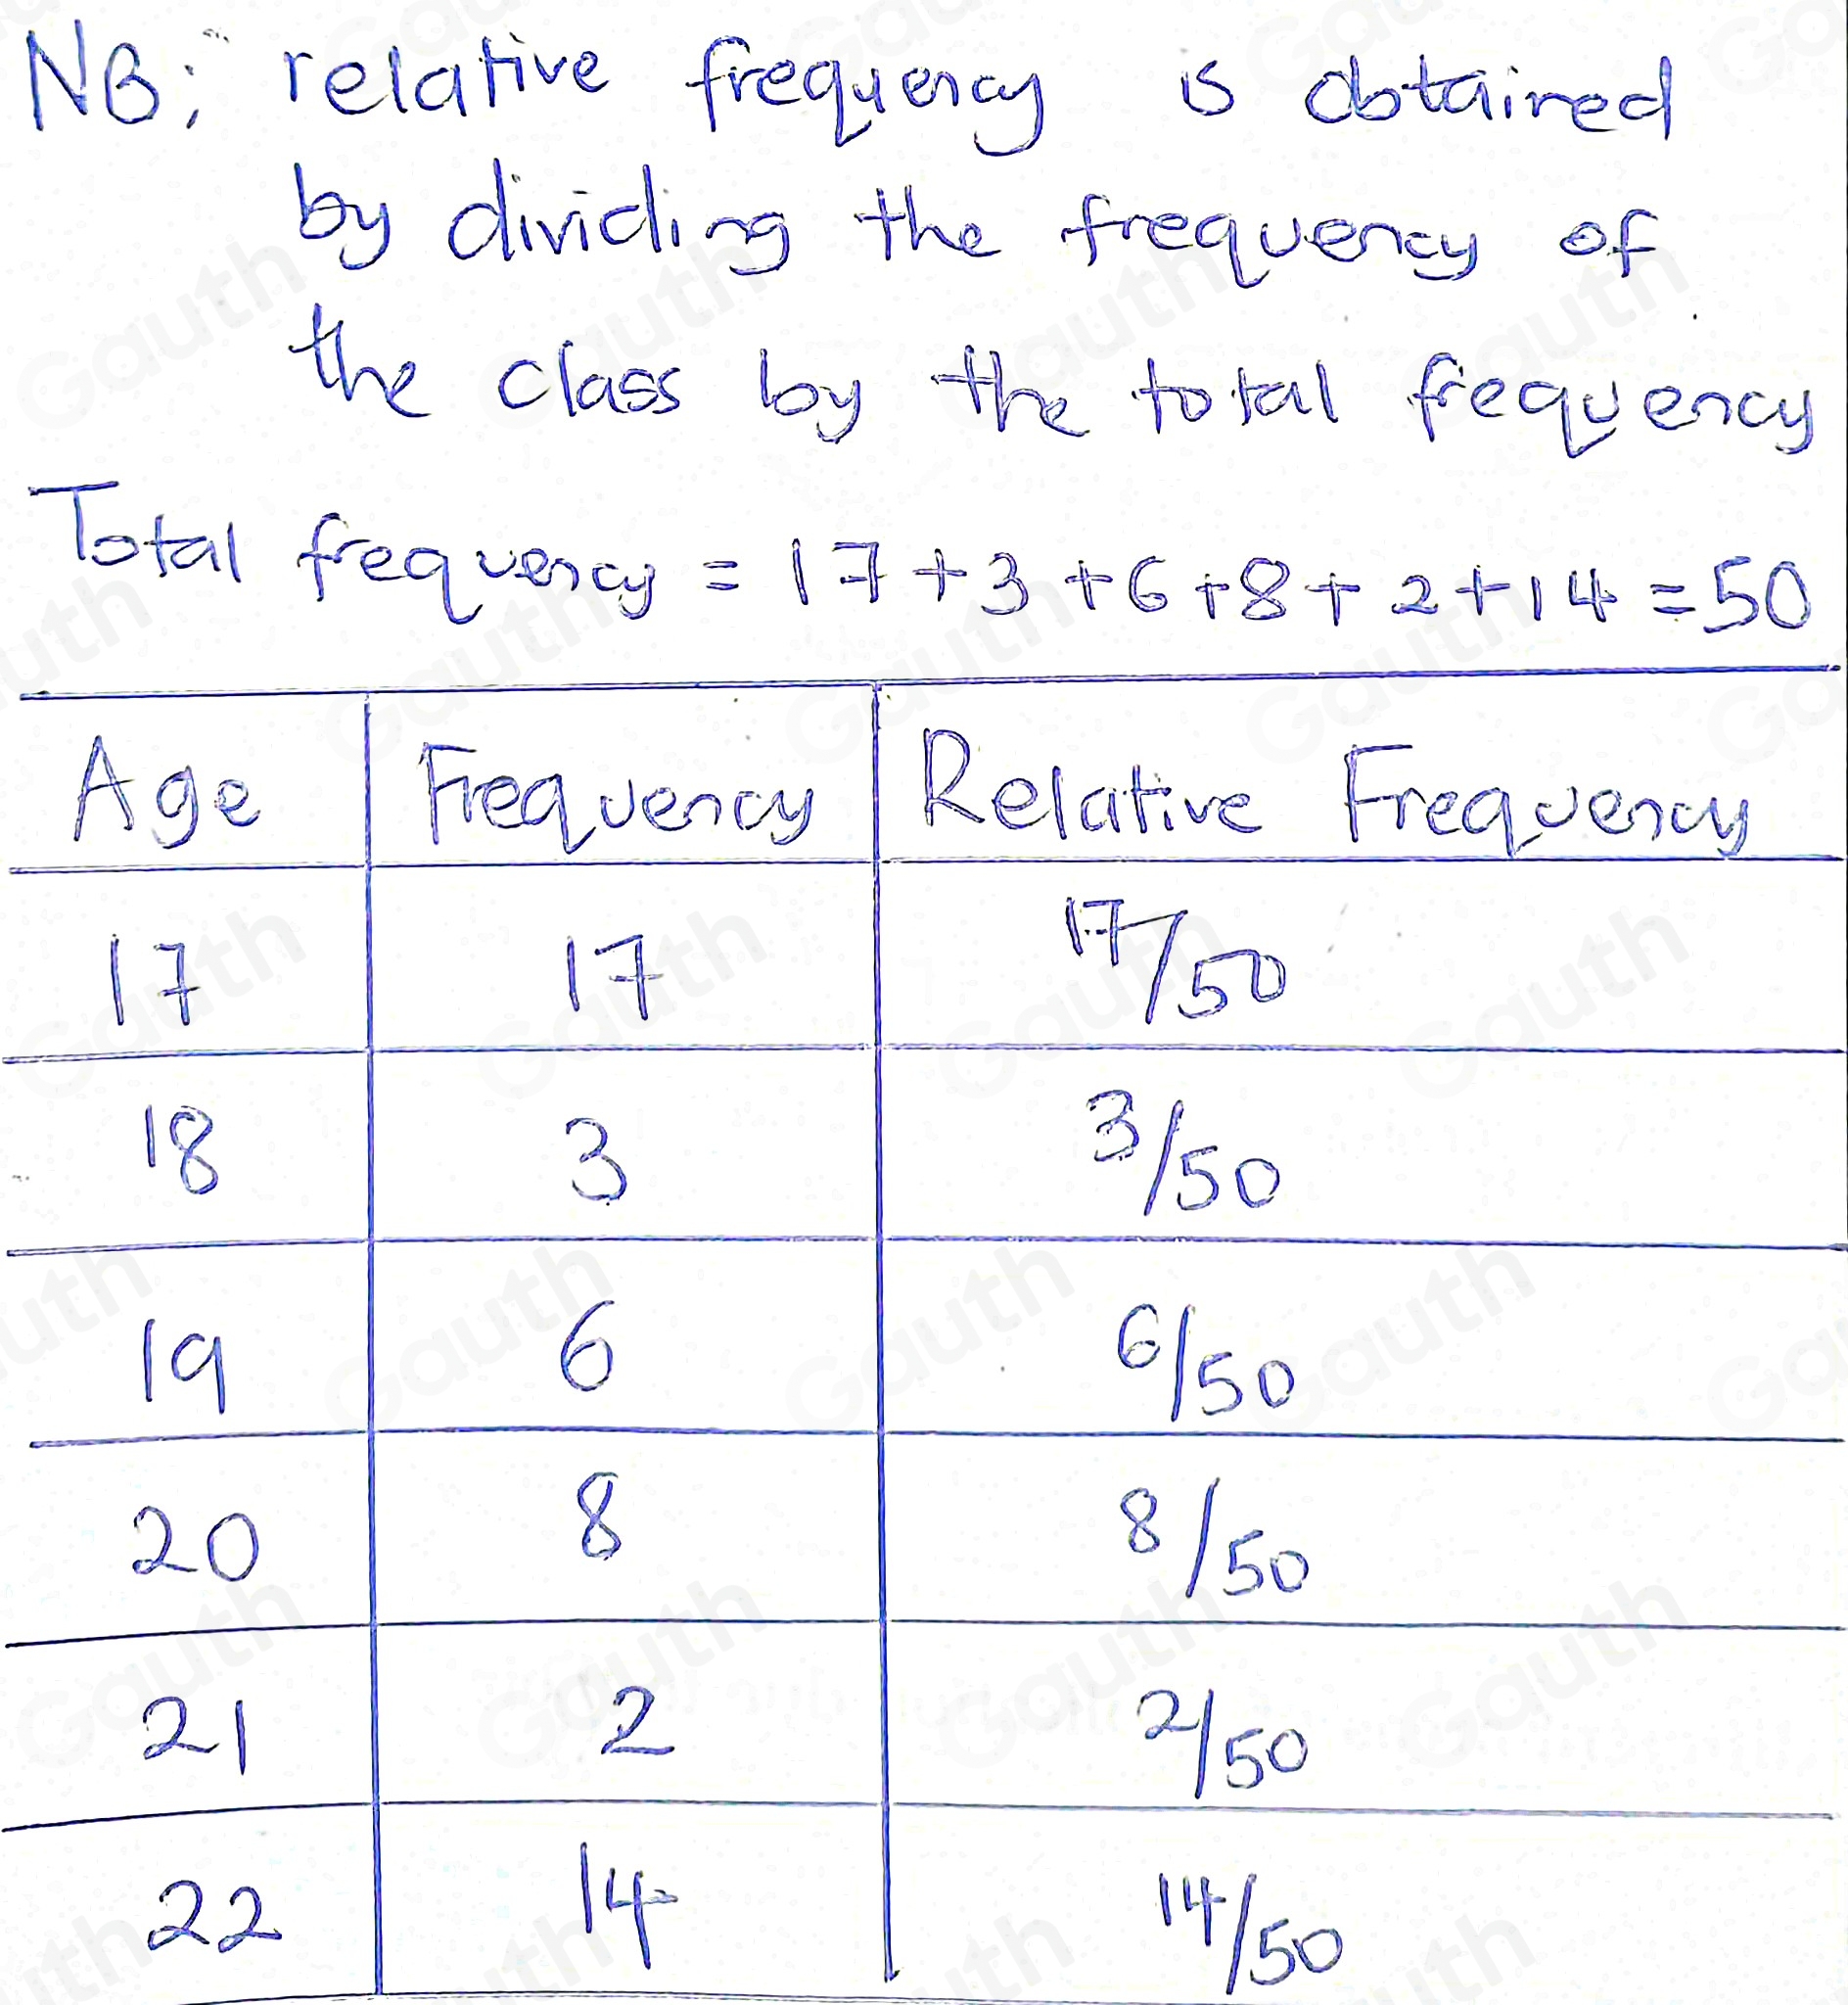 NB: relative frequency is obtained
by dividing the frequency of
the class by the total frequency
Total frequency = 17+3+6+8+2+14=50
Age Frequency Relative Frequency
17 17 17/50
18 3 3/50
19 6 6/50
20 8 8/50
21 2 2/50
22 14 14/50